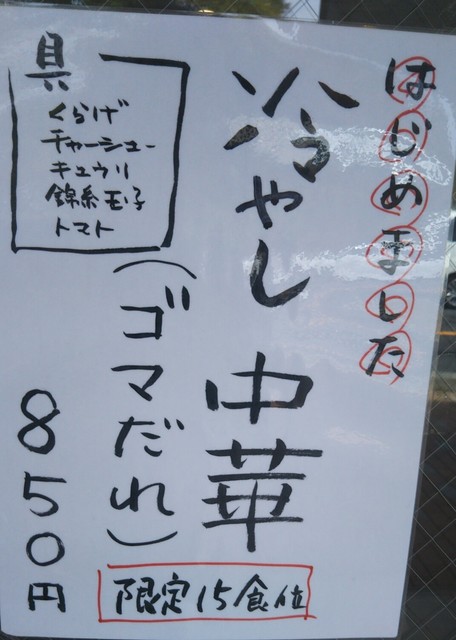 はじめました
冷やし中華
(ゴマだれ)
限定15食位
具
くらげ
チャーシュー
キュウリ
錦糸玉子
トマト
850円